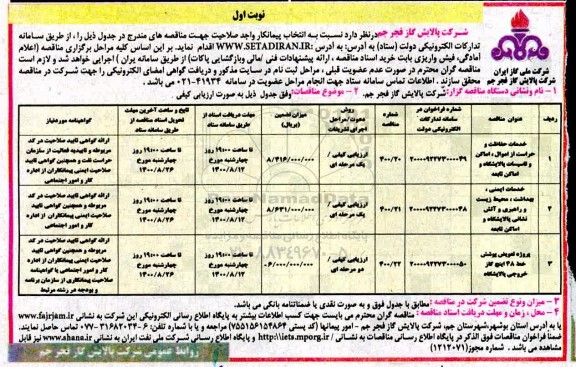 نوبت اول
شرکت ملی گاز ایران
شرکت پالایش گاز فجر جم
شرکت پالایش گاز فجر جم درنظر دارد نسبت به انتخاب پیمانکار واجد صلاحیت جهت مناقصه های مندرج در جدول ذیل را ، از طریق سامانه
تدارکات الکترونیکی دولت (ستاد) به آدرس: به آدرس :WWW.SETADIRAN.IR اقدام نماید. بر این اساس کلیه مراحل برگزاری مناقصه (اعلام
آمادگی، فیش واریزی بابت خرید اسناد مناقصه ، ارائه پیشنهادات فنی /مالی وبازگشایی پاکات) از طریق سامانه اجرائی خواهد شد و لازم است
مناقصه گران محترم در صورت عدم عضویت قبلی ، مراحل ثبت نام در سایت مذکور و دریافت گواهی امضای الکترونیکی را جهت شرکت در مناقصه
محقق سازند . اطلاعات تماس سامانه ستاد جهت انجام مراحل عضویت در سامانه ۴۱۹۳۴-۰۲۱ می باشد .
۱ - نام ونشانی دستگاه مناقصه گزار: شرکت پالایش گاز فجر جم. ۲ - موضوع مناقصات: وفق جدول ذیل به صورت ارزیابی کیفی
ردیف | عنوان مناقصه | شماره فراخوان در سامانه تدارکات الکترونیکی دولت | شماره مناقصه | روش دعوت/مراحل اجرای تشریفات | میزان تضمین (بریال) | مهلت دریافت اسناد از طریق سامانه ستاد | تاریخ و ساعت آخرین مهلت تحویل اسناد مناقصه از طریق سامانه ستاد | گواهینامه موردنیاز
۱ | خدمات حفاظت و حراست از اموال ، اماکن و تاسیسات پالایشگاه و اماکن تابعه | ۲۰۰۰۰۹۲۲۷۳۰۰۰۰۴۹ | ۴۰۰/۲۰ | ارزیابی کیفی / یک مرحله ای | ۸/۴۱۶/۰۰۰/۰۰۰ | تا ساعت ۱۹:۰۰ روز چهارشنبه مورخ ۱۴۰۰/۸/۱۲ | تا ساعت ۱۹:۰۰ روز چهارشنبه مورخ ۱۴۰۰/۸/۲۶ | ارائه گواهی تایید صلاحیت در کد مربوطه و تاییدیه فعالیت از سازمان حراست نفت و همچنین گواهی تایید صلاحیت ایمنی پیمانکاران از اداره کار و امور اجتماعی
۲ | خدمات ایمنی ، بهداشت ، محیط زیست و راهبری و آتش نشانی پالایشگاه و اماکن تابعه | ۲۰۰۰۰۹۲۲۷۳۰۰۰۰۴۸ | ۴۰۰/۲۱ | ارزیابی کیفی / یک مرحله ای | ۸/۶۳۱/۰۰۰/۰۰۰ | تا ساعت ۱۹:۰۰ روز چهارشنبه مورخ ۱۴۰۰/۸/۱۲ | تا ساعت ۱۹:۰۰ روز چهارشنبه مورخ ۱۴۰۰/۸/۲۶ | ارائه گواهی تایید صلاحیت در کد مربوطه و همچنین گواهی تایید صلاحیت ایمنی پیمانکاران از اداره کار و امور اجتماعی
۳ | پروژه تعویض پوشش خط ۴۸ اینچ گاز خروجی پالایشگاه | ۲۰۰۰۰۹۲۲۷۳۰۰۰۰۵۰ | ۴۰۰/۲۲ | ارزیابی کیفی / دو مرحله ای | ۶/۰۰۰/۰۰۰/۰۰۰ | تا ساعت ۱۹:۰۰ روز چهارشنبه مورخ ۱۴۰۰/۸/۱۲ | تا ساعت ۱۹:۰۰ روز چهارشنبه مورخ ۱۴۰۰/۸/۲۶ | ارائه گواهی تایید صلاحیت در کد مربوطه و همچنین گواهی تایید صلاحیت ایمنی پیمانکاران از اداره کار و امور اجتماعی یا گواهینامه صلاحیت پیمانکاری از سازمان برنامه و بودجه در رشته مرتبط
۳ - میزان ونوع تضمین شرکت در مناقصه: مطابق با جدول فوق و به صورت نقدی یا ضمانتنامه بانکی می باشد.
۴ - محل ، زمان و مهلت دریافت اسناد مناقصه: مناقصه گران محترم می بایست جهت کسب اطلاعات بیشتر به پایگاه اطلاع رسانی الکترونیکی این شرکت به نشانی www.fajrjam.ir
یا به آدرس استان بوشهر، شهرستان جم، شرکت پالایش گاز فجر جم - امور پیمانها (کد پستی ۷۵۵۱۵۶۱۵۴۸۶۴) مراجعه و یا با شماره تلفن: ۶-۳۱۶۸۲۰۳۴-۰۷۷ تماس حاصل نمایند.
ضمنا فراخوان مناقصات فوق الذکر در پایگاه اطلاع رسانی مناقصات به نشانی / http:\\iets.mporg.ir و پایگاه اطلاع رسانی شرکت ملی نفت ایران به نشانی www.shana.ir نیز قابل
مشاهده می باشد . شماره مجوز(۱۲۱۲۰۷۱)
روابط عمومی شرکت پالایش گاز فجر جم